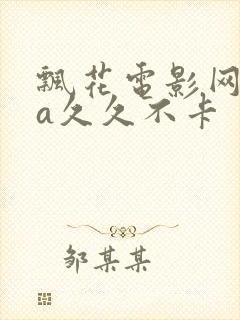 飘花电影网
a久久不卡
邹某某